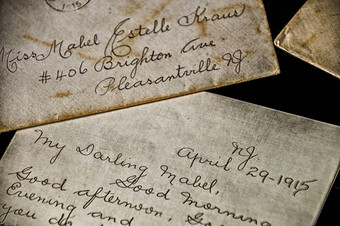 1-15
Miss Mabel Estelle Kraus
#406 Brighton Ave.
Pleasantville NJ
NJ.
My Darling Mabel, April 29-1915
Good afternoon, Good Morning
Evening and
you